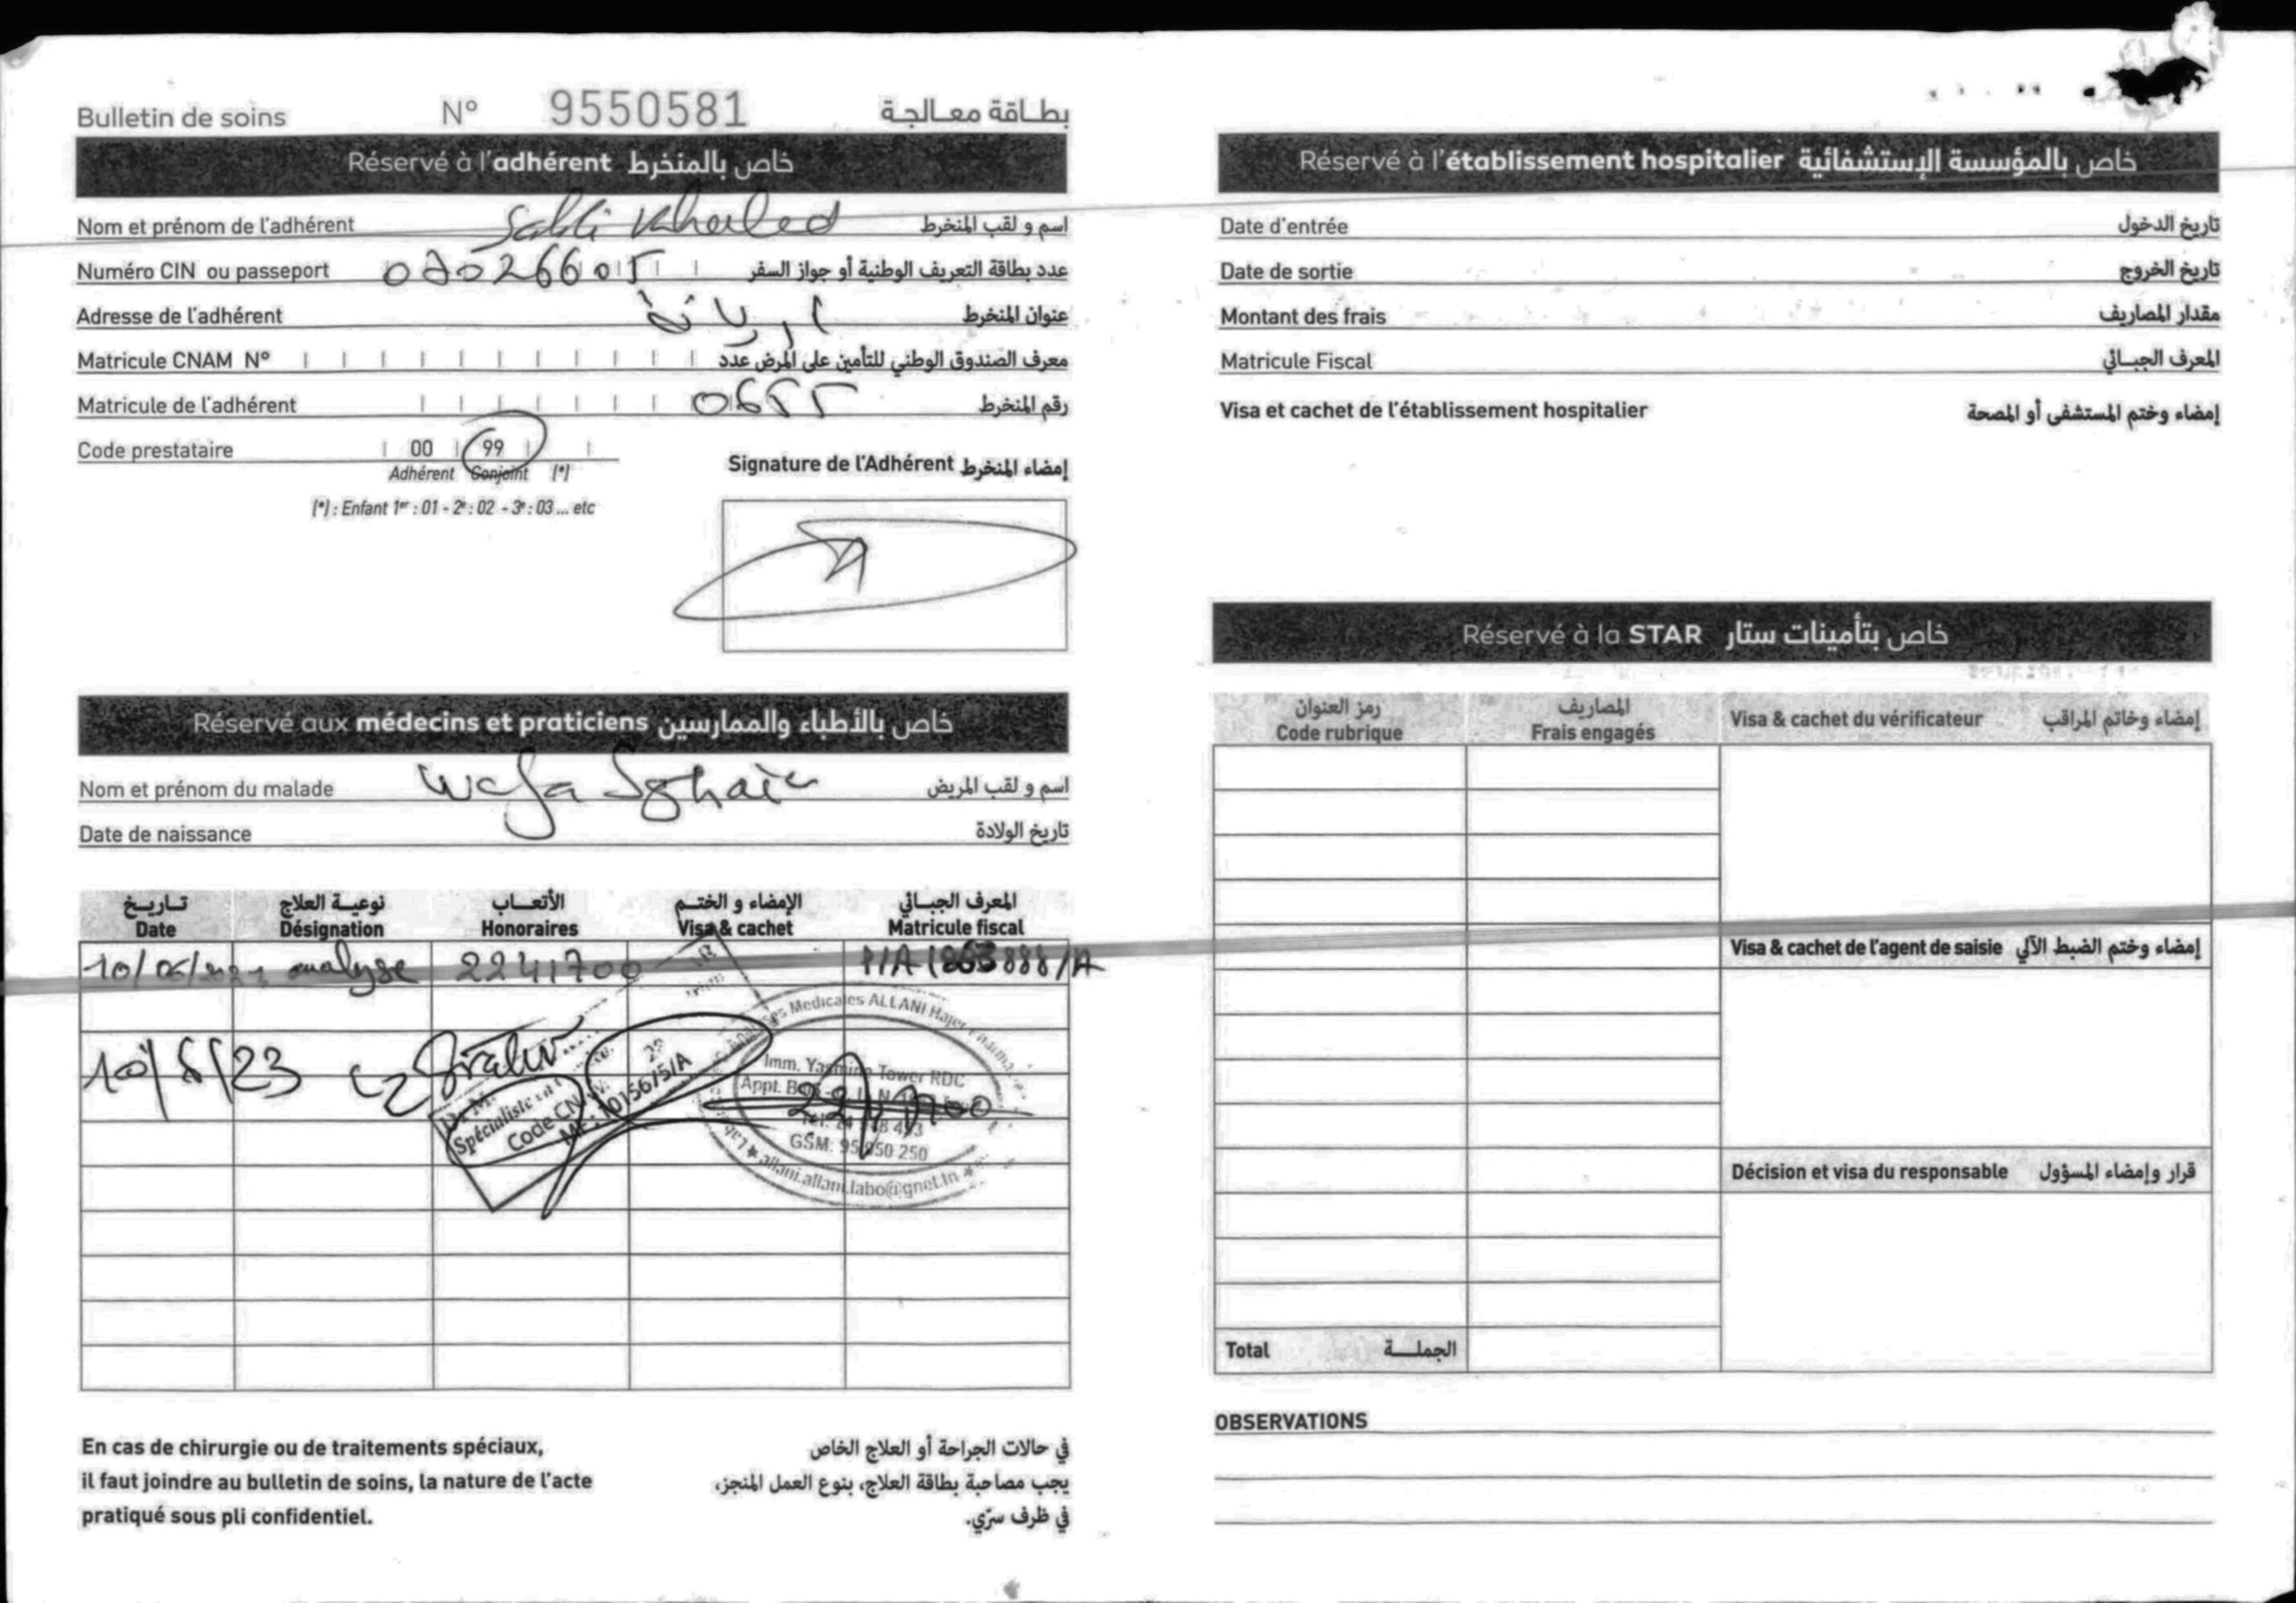 Bulletin de soins N° 9550581 بطاقة معالجة
Réservé à l'adhérent خاص بالمنخرط
Nom et prénom de l'adhérent Khaled اسم و لقب المنخرط
Numéro CIN ou passeport عدد بطاقة التعريف الوطنية أو جواز السفر
Adresse de l'adhérent اريانة عنوان المنخرط
Matricule CNAM N° معرف الصندوق الوطني للتأمين على المرض عدد
Matricule de l'adhérent 0655 رقم المنخرط
Code prestataire 00 99
Adhérent Conjoint (*)
(*) : Enfant 1er : 01 - 2e : 02 - 3e : 03 ... etc
Signature de l'Adhérent إمضاء المنخرط
Réservé aux médecins et praticiens خاص بالأطباء والممارسين
Nom et prénom du malade Wafa Sghaier اسم و لقب المريض
Date de naissance تاريخ الولادة
تاريخ نوعية العلاج الأتعاب الإمضاء و الختم المعرف الجبائي
Date Désignation Honoraires Visa & cachet Matricule fiscal
10/06/2023 analyse 2241700
10/6/23
Spécialiste
Code CN
MF: 10156/5/A
Analyses Medicales ALLANI Hajer
Imm. Yasmine Tower RDC
Appt.
GSM: 95 850 250
allani.allani.labo@gnet.tn
En cas de chirurgie ou de traitements spéciaux,
il faut joindre au bulletin de soins, la nature de l'acte
pratiqué sous pli confidentiel.
في حالات الجراحة أو العلاج الخاص
يجب مصاحبة بطاقة العلاج، بنوع العمل المنجز،
في ظرف سرّي.
Réservé à l'établissement hospitalier خاص بالمؤسسة الإستشفائية
Date d'entrée تاريخ الدخول
Date de sortie تاريخ الخروج
Montant des frais مقدار المصاريف
Matricule Fiscal المعرف الجبائي
Visa et cachet de l'établissement hospitalier إمضاء وختم المستشفى أو المصحة
Réservé à la STAR خاص بتأمينات ستار
رمز العنوان المصاريف
Code rubrique Frais engagés Visa & cachet du vérificateur إمضاء وخاتم المراقب
Visa & cachet de l'agent de saisie إمضاء وختم الضبط الآلي
Décision et visa du responsable قرار وإمضاء المسؤول
Total الجملة
OBSERVATIONS